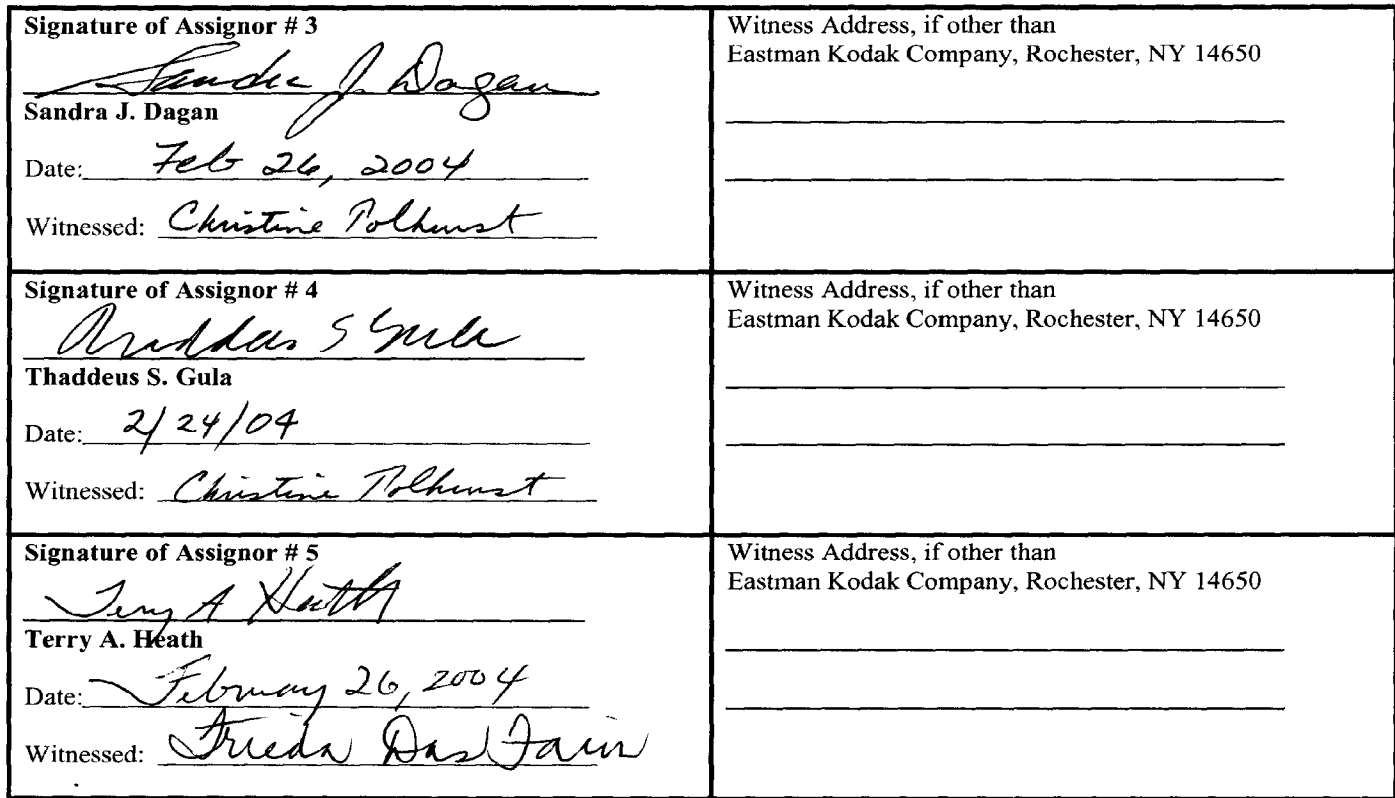 Signature of Assignor # 3
Sandra J. Dagan
Sandra J. Dagan
Date: Feb 26, 2004
Witnessed: Christine Tolhurst
Witness Address, if other than
Eastman Kodak Company, Rochester, NY 14650
Signature of Assignor # 4
Thaddeus S Gula
Thaddeus S. Gula
Date: 2/24/04
Witnessed: Christine Tolhurst
Witness Address, if other than
Eastman Kodak Company, Rochester, NY 14650
Signature of Assignor # 5
Terry A Heath
Terry A. Heath
Date: February 26, 2004
Witnessed: Frieda
Witness Address, if other than
Eastman Kodak Company, Rochester, NY 14650